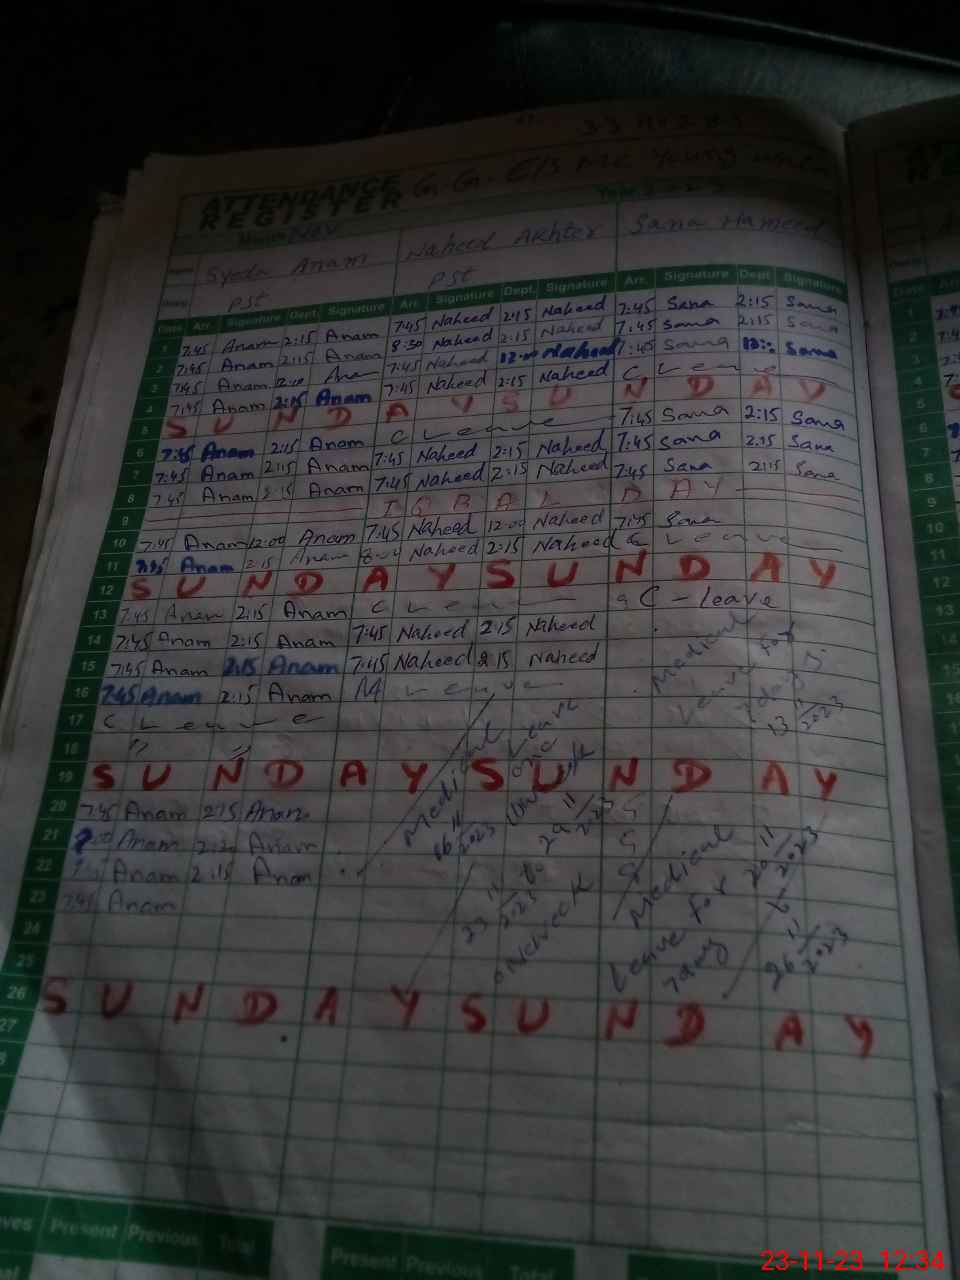 ATTENDANCE G.G. E/S
REGISTER
Month Nov
Name Syeda Anam Naheed Akhter Sana Hameed
PST PST
Date Arr. Signature Dept. Signature Arr. Signature Dept. Signature Arr. Signature Dept. Signature
1 7:45 Anam 2:15 Anam 7:45 Naheed 2:15 Naheed 7:45 Sana 2:15 Sana
2 7:45 Anam 2:15 Anam 8:30 Naheed 2:15 Naheed 7:45 Sana 2:15 Sana
3 7:45 Anam 12:00 Anam 7:45 Naheed 12:00 Naheed 7:45 Sana 12:00 Sana
4 7:45 Anam 2:15 Anam 7:45 Naheed 2:15 Naheed C Leave
5 SUNDAY SUNDAY
6 7:45 Anam 2:15 Anam C Leave 7:45 Sana 2:15 Sana
7 7:45 Anam 2:15 Anam 7:45 Naheed 2:15 Naheed 7:45 Sana 2:15 Sana
8 7:45 Anam 2:15 Anam 7:45 Naheed 2:15 Naheed 7:45 Sana 2:15 Sana
9 IQBAL DAY
10 7:45 Anam 12:00 Anam 7:45 Naheed 12:00 Naheed 7:45 Sana
11 7:45 Anam 2:15 Anam Naheed 2:15 Naheed C Leave
12 SUNDAY SUNDAY
13 7:45 Anam 2:15 Anam C Leave C - leave
14 7:45 Anam 2:15 Anam 7:45 Naheed 2:15 Naheed
15 7:45 Anam 2:15 Anam 7:45 Naheed 2:15 Naheed
16 7:45 Anam 2:15 Anam M Leave
Medical
Leave for
7 days
13 11 2023
17 C Leave
18 〃 〃
19 SUNDAY SUNDAY
20 7:45 Anam 2:15 Anam
21 Anam Anam
22 Anam 2:15 Anam
23 7:45 Anam
Medical Leave
one
16 11 2023
to
22 11 2023
23 11 2023 to
one week
Medical
Leave for
7 days
20 11 2023
to
26 11 2023
24
25
26 SUNDAY SUNDAY
27
Present Previous Total
Present Previous Total
23-11-23 12:34